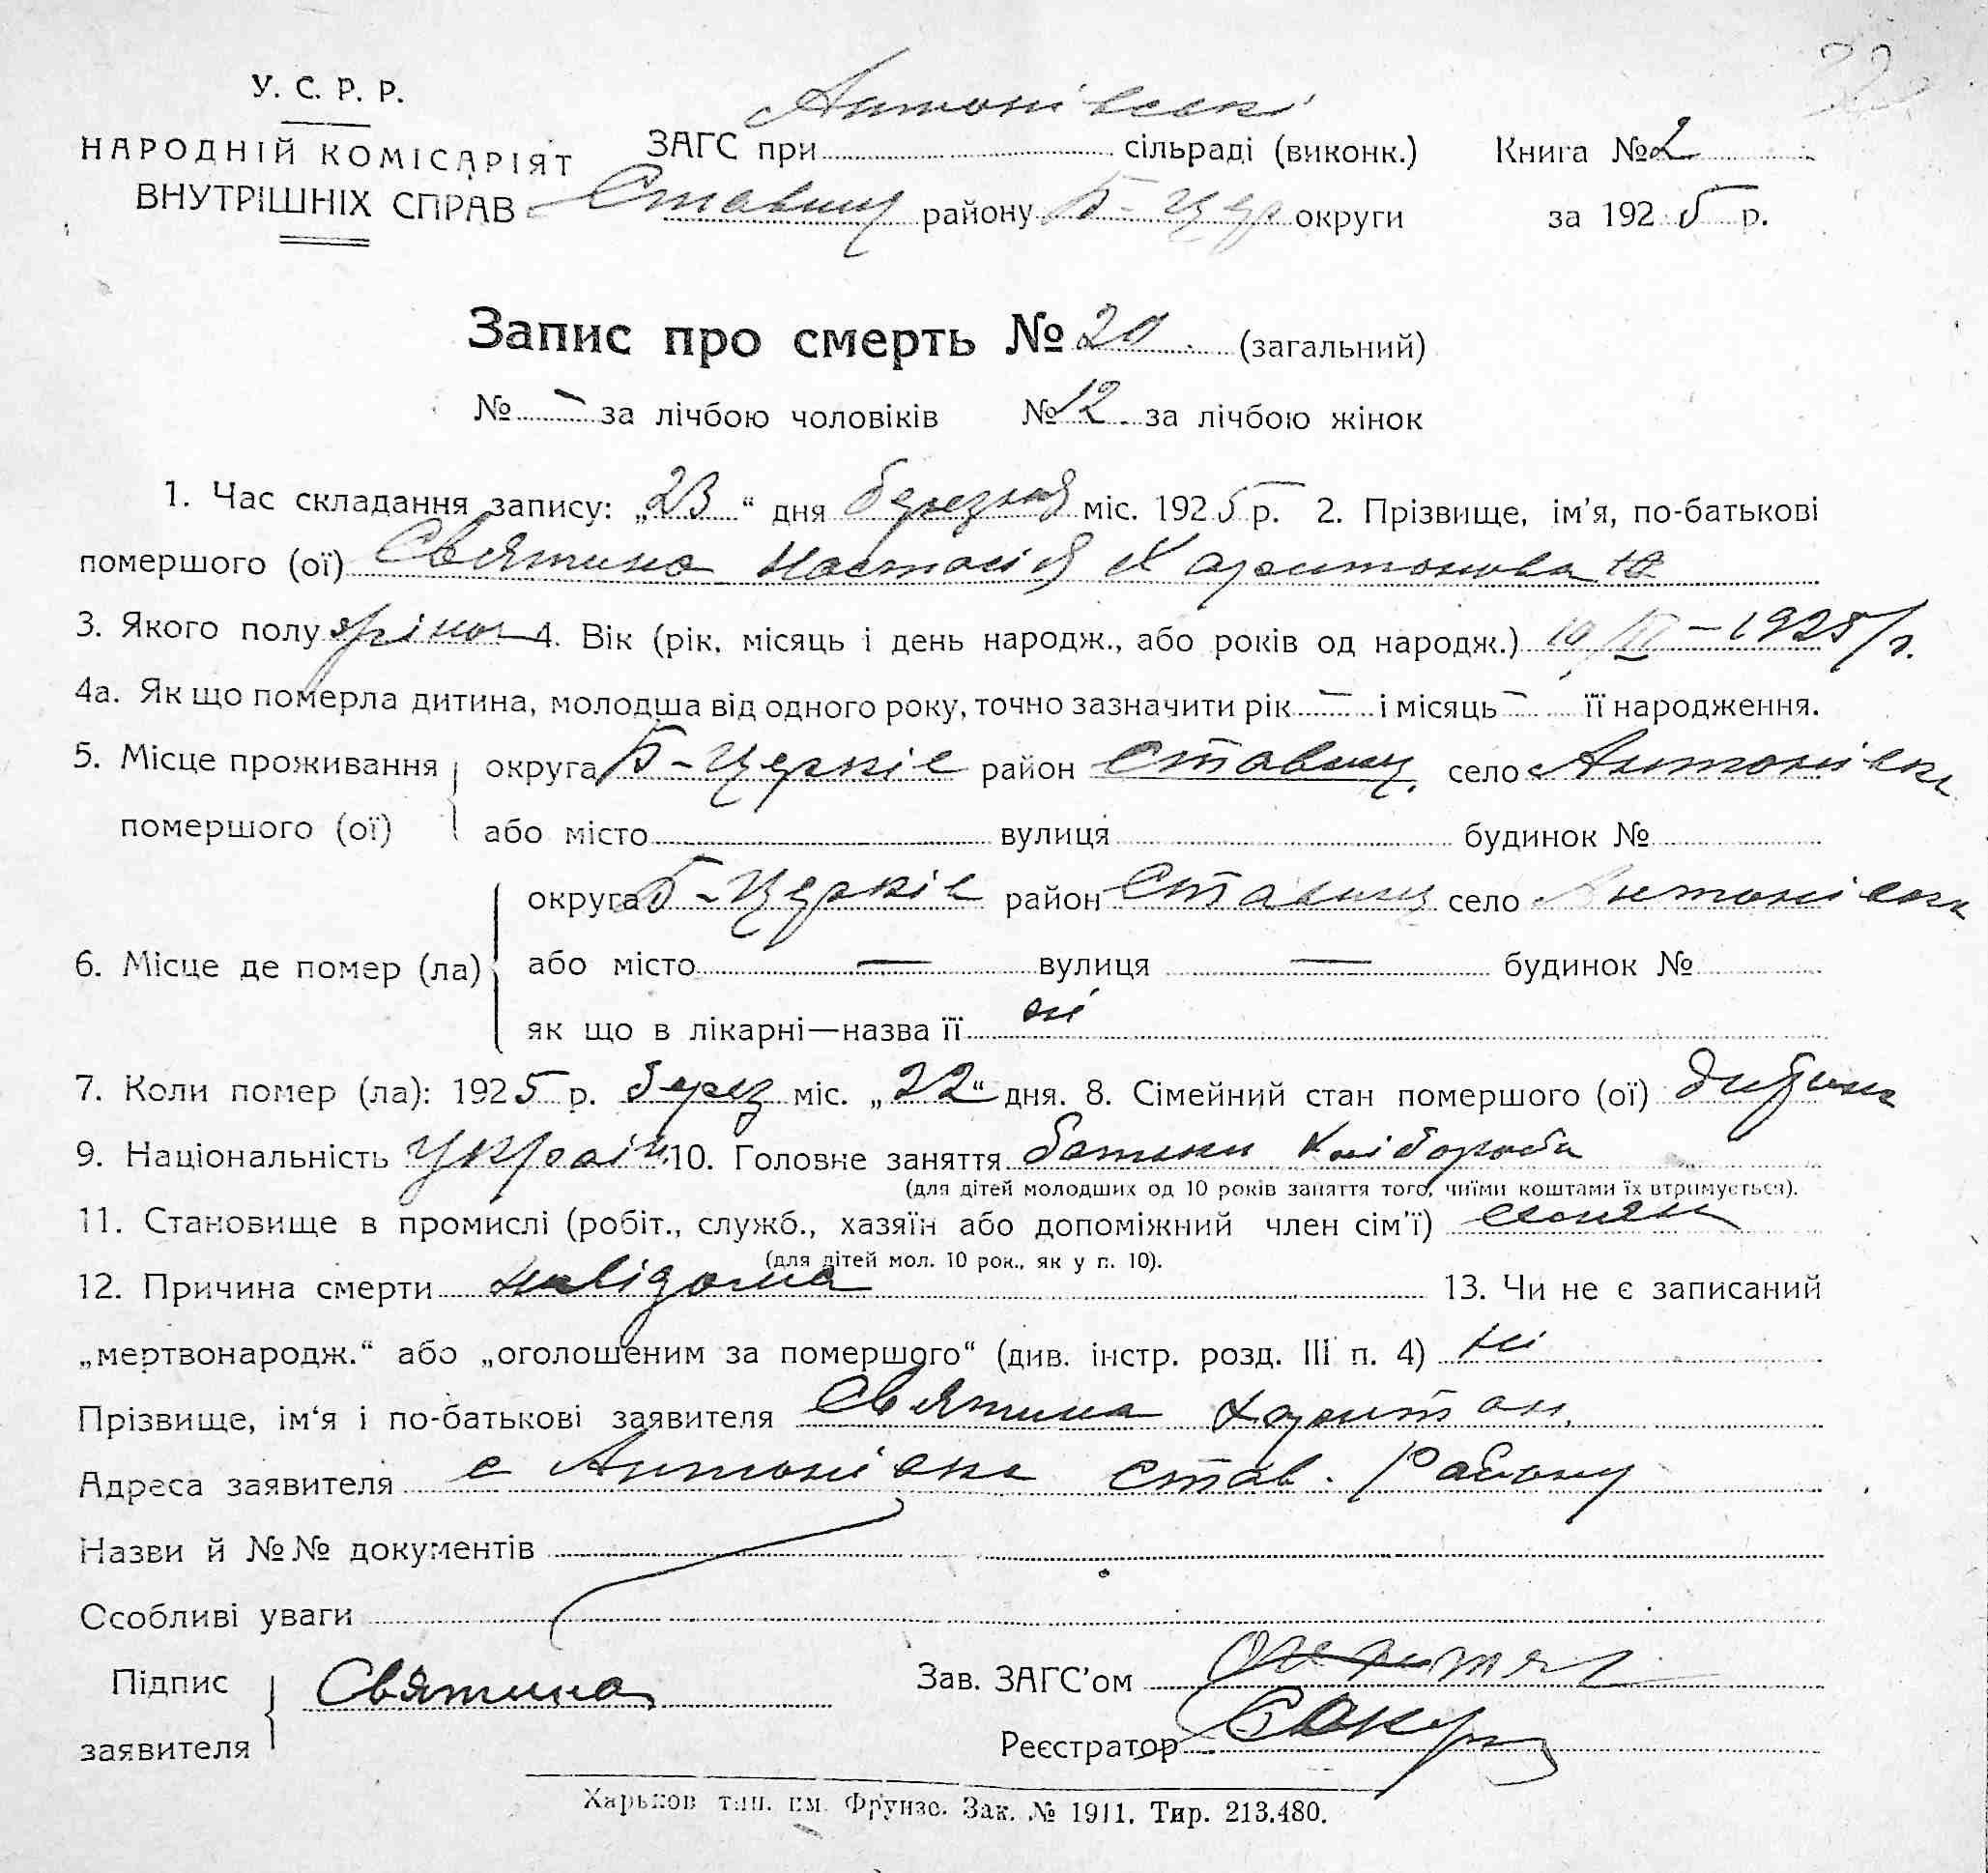 32
У. С. Р. Р.
НАРОДНІЙ КОМІСАРІЯТ
ВНУТРІШНІХ СПРАВ
ЗАГС при Антонівськ сільраді (виконк.) Книга №2
Ставищ району Б-Цер округи за 1925 р.
Запис про смерть № 20 (загальний)
№ – за лічбою чоловіків №12 за лічбою жінок
1. Час складання запису: „23“ дня березня міс. 1925 р. 2. Прізвище, ім'я, по-батькові
помершого (ої) Святина Настасія Харитонова
3. Якого полу жіноч 4. Вік (рік, місяць і день народж., або років од народж.) 1925 г.
4а. Як що померла дитина, молодша від одного року, точно зазначити рік – і місяць – її народження.
5. Місце проживання округа Б-Церків район Ставищ. село Антонівка
помершого (ої) або місто вулиця будинок №
округа Б-Церків район Ставищ село Антонівка
6. Місце де помер (ла) або місто — вулиця — будинок №
як що в лікарні—назва її ні
7. Коли помер (ла): 1925 р. берез міс. „22“ дня. 8. Сімейний стан помершого (ої) дитина
9. Національність україн 10. Головне заняття батьки хлібороби
(для дітей молодших од 10 років заняття того, чиїми коштами їх втримується).
11. Становище в промислі (робіт., служб., хазяїн або допоміжний член сім'ї)
(для дітей мол. 10 рок., як у п. 10).
12. Причина смерти невідома 13. Чи не є записаний
„мертвонародж.“ або „оголошеним за помершого“ (див. інстр. розд. III п. 4) ні
Прізвище, ім'я і по-батькові заявителя Святина Харитон
Адреса заявителя с Антонівка Став. Району
Назви й №№ документів
Особливі уваги
Підпис Святина Зав. ЗАГС'ом
заявителя Реєстратор
Харьков тип. им. Фрунзе. Зак. № 1911. Тир. 213.480.